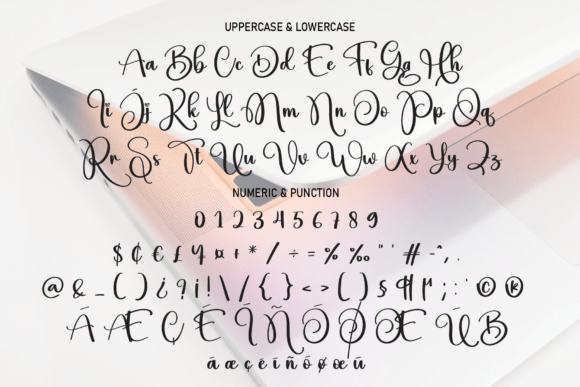 UPPERCASE & LOWERCASE
Aa Bb Cc Dd Ee Ff Gg Hh
Ii Jj Kk Ll Mm Nn Oo Pp Qq
Rr Ss Tt Uu Vv Ww Xx Yy Zz
NUMERIC & PUNCTION
0 1 2 3 4 5 6 7 8 9
$ ₵ € £ ¤ + * / ÷ = % ‰ " ' # - ^ , .
@ & _ ( ) ¿ ? ¡ ! \ / { } < > ( ) § ¶ ; : ' © ®
Á Æ Ç É Í Ñ Ó Ø Œ Ú ß
á æ ç ë í ñ ó ø œ ú